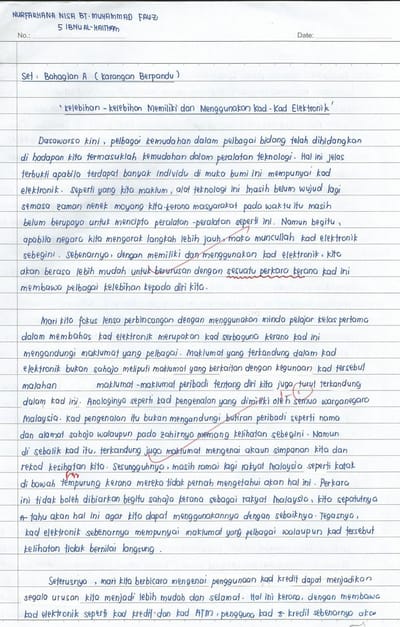 NURFARHANA NISA BT. MUHAMMAD FAUZI
5 IBNU AL-HAITHAM
No.: Date:
Set : Bahagian A ( Karangan Berpandu )
'Kelebihan - kelebihan Memiliki dan Menggunakan Kad-Kad Elektronik'
Dasawarsa kini , pelbagai kemudahan dalam pelbagai bidang telah dihidangkan
di hadapan kita termasuklah kemudahan dalam peralatan teknologi. Hal ini jelas
terbukti apabila terdapat banyak individu di muka bumi ini mempunyai kad
elektronik. Seperti yang kita maklum, alat teknologi ini masih belum wujud lagi
semasa zaman nenek moyang kita kerana masyarakat pada waktu itu masih
belum berupaya untuk mencipta peralatan -peralatan seperti ini. Namun begitu,
apabila negara kita mengorak langkah lebih jauh, maka munculah kad elektronik
sebegini. Sebenarnya, dengan memiliki dan menggunakan kad elektronik, kita
akan berasa lebih mudah untuk berurusan dengan sesuatu perkara kerana kad ini
membawa pelbagai kelebihan kepada diri kita.
Mari kita fokus lensa perbincangan dengan menggunakan minda pelajar kelas pertama
dalam membahas kad elektronik merupakan kad serbaguna kerana kad ini
mengandungi maklumat yang pelbagai. Maklumat yang terkandung dalam kad
elektronik bukan sahaja meliputi maklumat yang berkaitan dengan kegunaan kad tersebut
malahan maklumat-maklumat peribadi tentang diri kita juga turut terkandung
dalam kad ini. Analoginya seperti kad pengenalan yang dimiliki oleh semua warganegara
Malaysia. Kad pengenalan itu bukan mengandungi butiran peribadi seperti nama
dan alamat sahaja walaupun pada zahirnya memang kelihatan sebegini. Namun
di sebalik kad itu, terkandung juga maklumat mengenai akaun simpanan kita dan
rekod kesihatan kita. Sesungguhnya, masih ramai lagi rakyat Malaysia seperti katak
di bawah tempurung kerana mereka tidak pernah mengetahui akan hal ini. Perkara
ini tidak boleh dibiarkan begitu sahaja kerana sebagai rakyat Malaysia, kita sepatutnya
tahu akan hal ini agar kita dapat menggunakannya dengan sebaiknya. Tegasnya,
kad elektronik sebenarnya mempunyai maklumat yang pelbagai walaupun kad tersebut
kelihatan tidak bernilai langsung.
Seterusnya , mari kita berbicara mengenai penggunaan kad kredit dapat menjadikan
segala urusan kita menjadi lebih mudah dan selamat. Hal ini kerana, dengan membawa
kad elektronik seperti kad kredit dan kad ATM, pengguna kad kredit sebenarnya akan